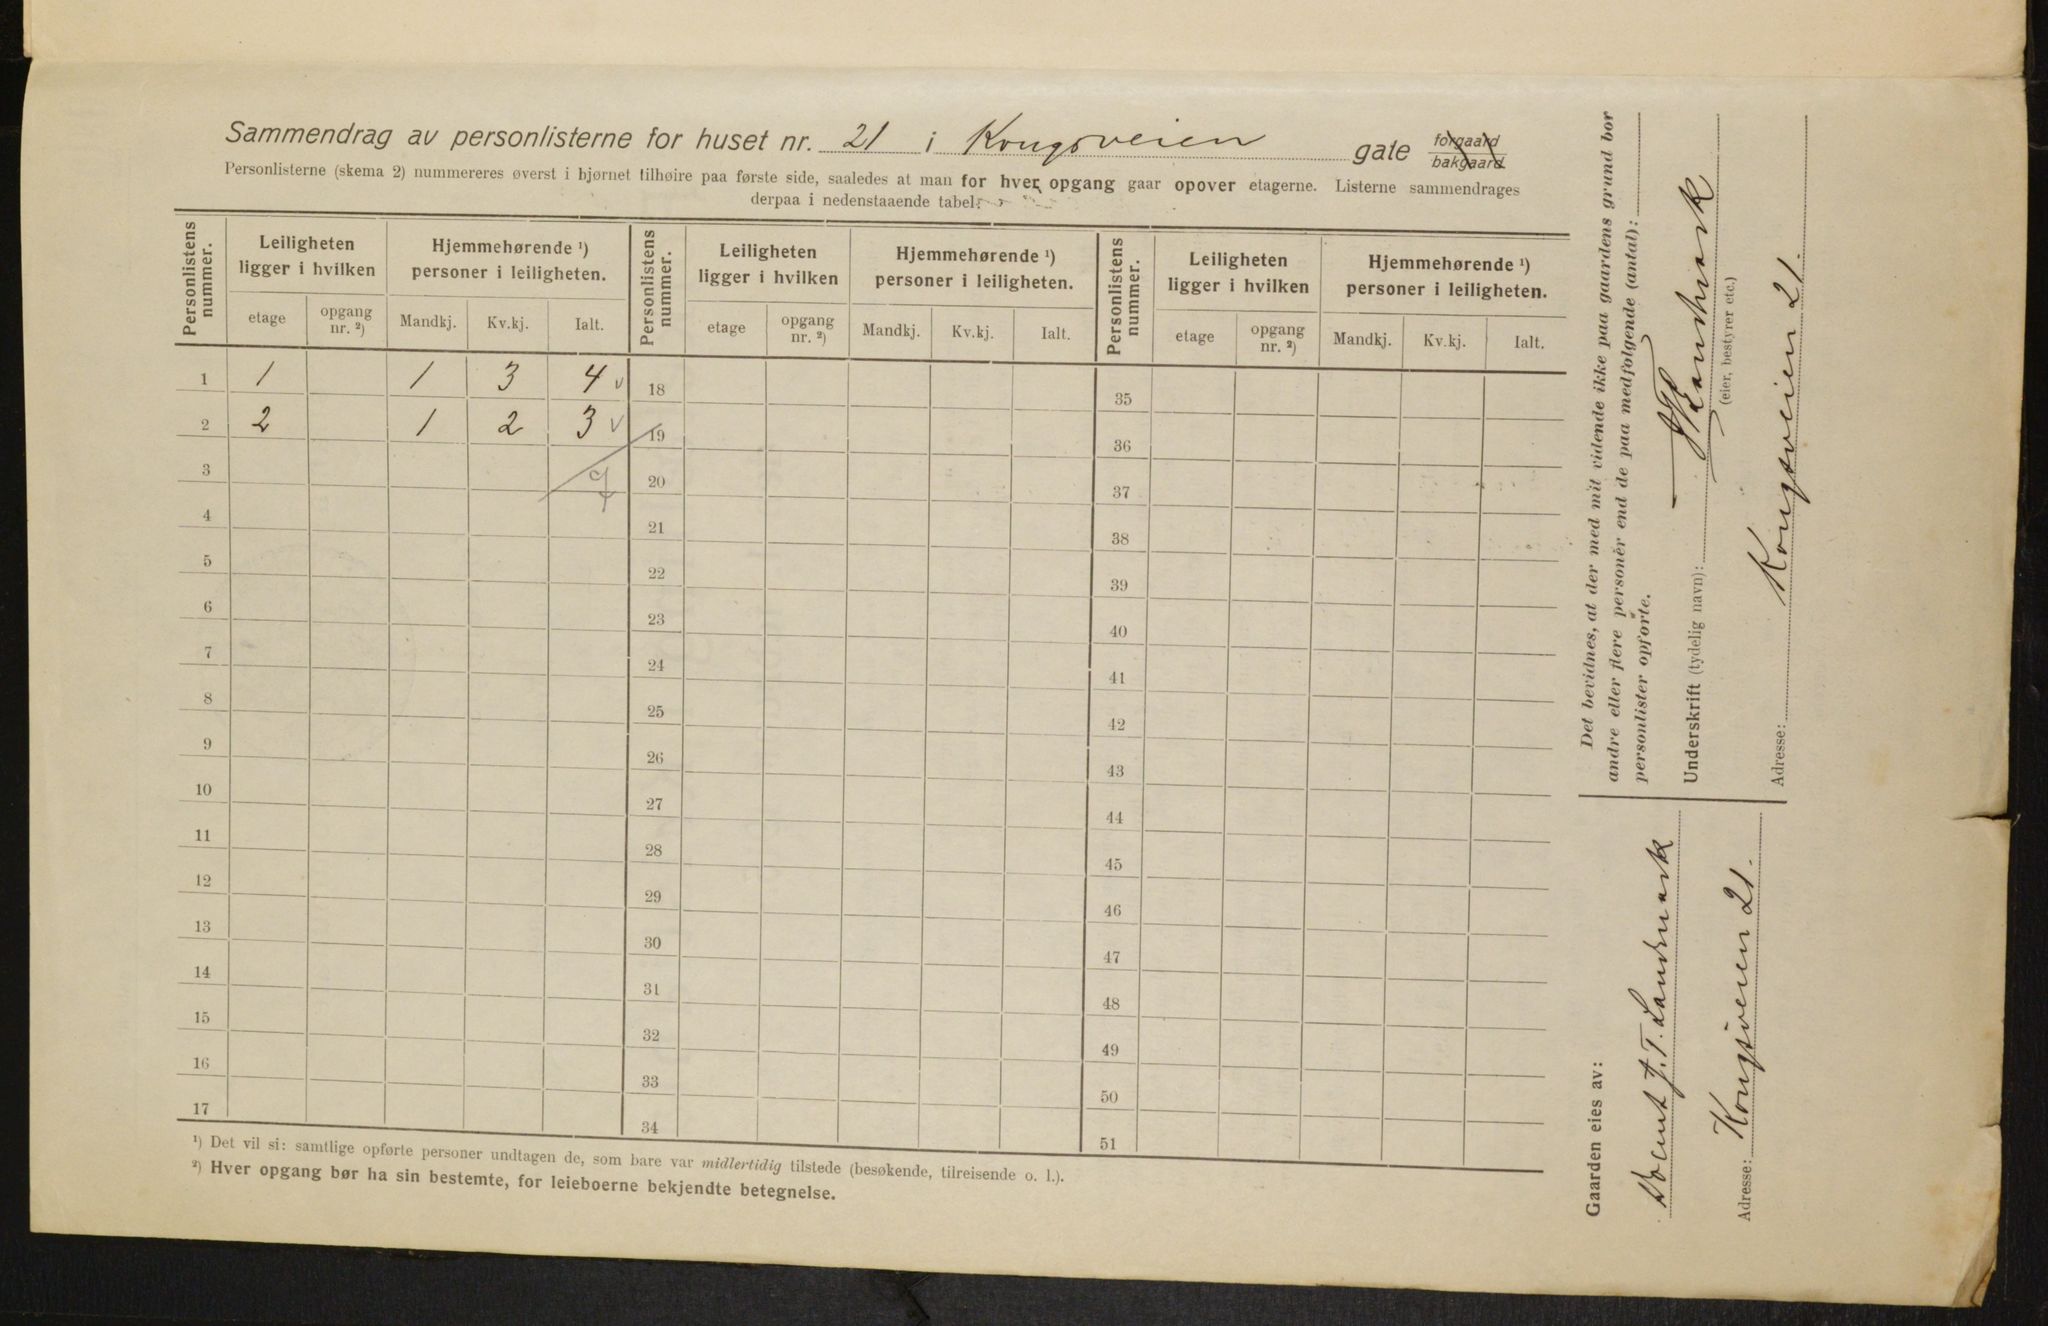 Sammendrag av personlisterne for huset nr. 21 i Kongsveien gate forgaard bakgaard
Personlisterne (skema 2) nummereres øverst i hjørnet tilhøire paa første side, saaledes at man for hver opgang gaar opover etagerne. Listerne sammendrages
derpaa i nedenstaaende tabel:
Personlistens nummer. Leiligheten ligger i hvilken Hjemmehørende ¹) personer i leiligheten. Personlistens nummer. Leiligheten ligger i hvilken Hjemmehørende ¹) personer i leiligheten. Personlistens nummer. Leiligheten ligger i hvilken Hjemmehørende ¹) personer i leiligheten.
etage opgang nr. ²) Mandkj. Kv.kj. Ialt. etage opgang nr. ²) Mandkj. Kv.kj. Ialt. etage opgang nr. ²) Mandkj. Kv.kj. Ialt.
1 1 1 3 4 v 18 35
2 2 1 2 3 v 19 36
3 7 20 37
4 21 38
5 22 39
6 23 40
7 24 41
8 25 42
9 26 43
10 27 44
11 28 45
12 29 46
13 30 47
14 31 48
15 32 49
16 33 50
17 34 51
¹) Det vil si: samtlige opførte personer undtagen de, som bare var midlertidig tilstede (besøkende, tilreisende o. l.).
²) Hver opgang bør ha sin bestemte, for leieboerne bekjendte betegnelse.
Det bevidnes, at der med mit vidende ikke paa gaardens grund bor
andre eller flere personer end de paa medfølgende (antal):
personlister opførte.
Underskrift (tydelig navn): Landmark
(eier, bestyrer etc.)
Adresse: Kongsveien 21.
Gaarden eies av:
Docent J. T. Landmark
Adresse: Kongsveien 21.